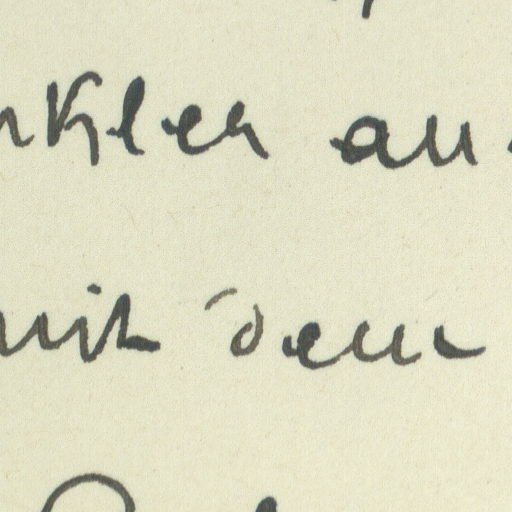 nkler au
mit dem